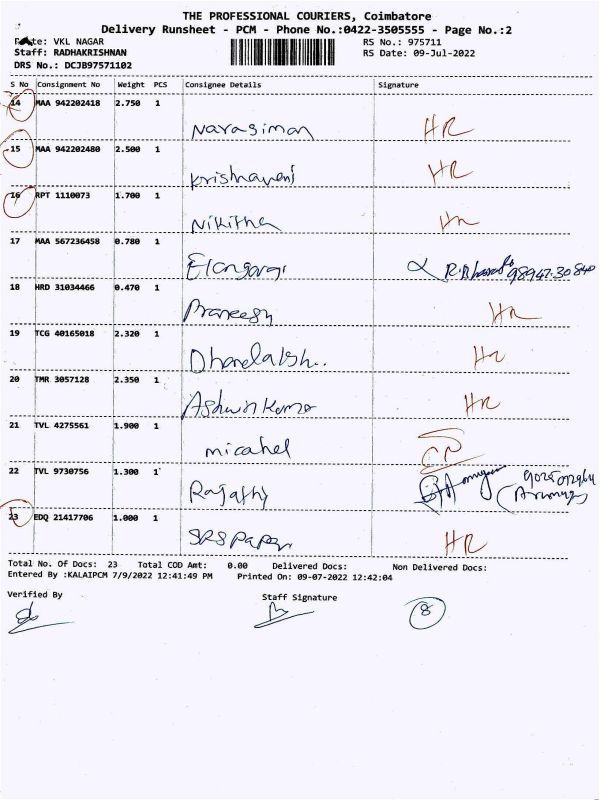 THE PROFESSIONAL COURIERS, Coimbatore
Delivery Runsheet - PCM - Phone No.:0422-3505555 - Page No.:2
VKL NAGAR RS No.: 975711
Staff: RADHAKRISHNAN RS Date: 09-Jul-2022
DRS No.: DCJB97571102
S No Consignment No Weight PCS Consignee Details Signature
14 MAA 942202418 2.750 1
Narasiman HR
15 MAA 942202480 2.500 1
Krishnaveni HR
16 RPT 1110073 1.700 1
Nikitha HR
17 MAA 567236458 0.780 1
18 HRD 31034466 0.470 1
Praneesh HR
19 TCG 40165018 2.320 1
Dhanalaksh.. HR
20 TMR 3057128 2.350 1
Ashwin Kumar HR
21 TVL 4275561 1.900 1
micahel
22 TVL 9730756 1.300 1
Rajathy
23 EDQ 21417706 1.000 1
SRS Paper HR
Total No. Of Docs: 23 Total COD Amt: 0.00 Delivered Docs: Non Delivered Docs:
Entered By :KALAIPCM 7/9/2022 12:41:49 PM Printed On: 09-07-2022 12:42:04
Verified By Staff Signature
8